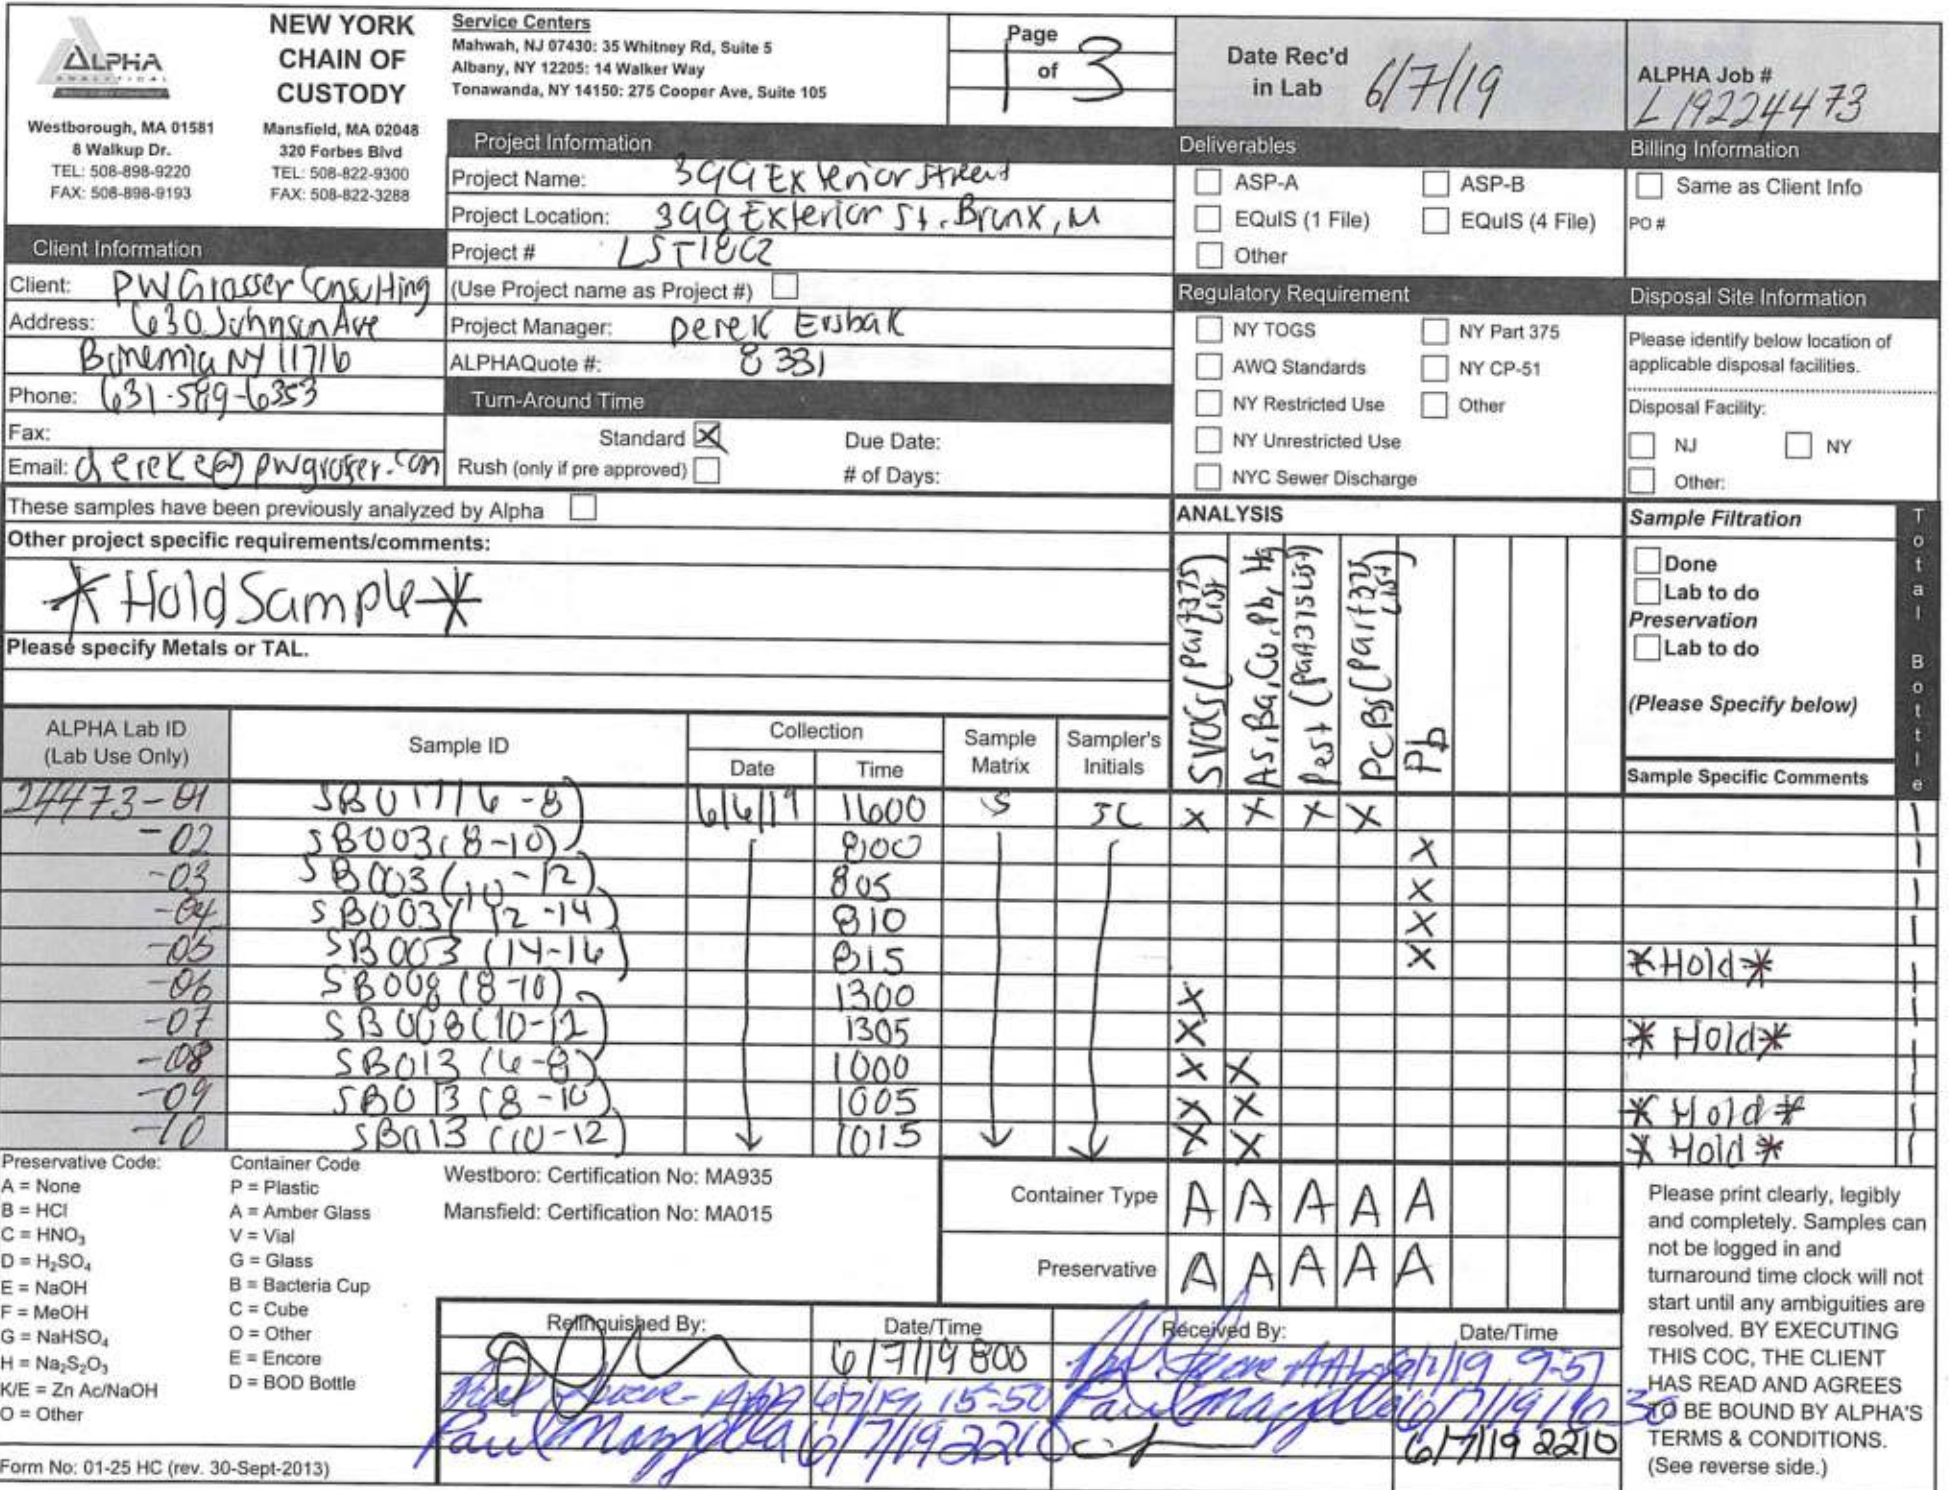 ALPHA
ANALYTICAL
Westborough, MA 01581
8 Walkup Dr.
TEL: 508-898-9220
FAX: 508-898-9193
NEW YORK
CHAIN OF
CUSTODY
Mansfield, MA 02048
320 Forbes Blvd
TEL: 508-822-9300
FAX: 508-822-3288
Service Centers
Mahwah, NJ 07430: 35 Whitney Rd, Suite 5
Albany, NY 12205: 14 Walker Way
Tonawanda, NY 14150: 275 Cooper Ave, Suite 105
Page
1 of 3
Date Rec'd
in Lab 6/7/19
ALPHA Job #
L19224473
Client Information
Client: PWGrosser Consulting
Address: 630 Johnson Ave
Bohemia NY 11716
Phone: 631-589-6353
Fax:
Email: dereke@pwgrosser.com
Project Information
Project Name: 399 Exterior Street
Project Location: 399 Exterior St. Bronx,
Project #
(Use Project name as Project #)
Project Manager: Derek Ersbak
ALPHAQuote #: 8331
Turn-Around Time
Standard X Due Date:
Rush (only if pre approved) # of Days:
Deliverables
ASP-A ASP-B
EQuIS (1 File) EQuIS (4 File)
Other
Regulatory Requirement
NY TOGS NY Part 375
AWQ Standards NY CP-51
NY Restricted Use Other
NY Unrestricted Use
NYC Sewer Discharge
Billing Information
Same as Client Info
PO #
Disposal Site Information
Please identify below location of
applicable disposal facilities.
Disposal Facility:
NJ NY
Other:
These samples have been previously analyzed by Alpha
Other project specific requirements/comments:
*Hold Sample*
Please specify Metals or TAL.
ANALYSIS
SVOCs (Part375 List)
As, Ba, Cu, Pb, Hg
Pest (Part375 List)
PCBs (Part375 List)
Pb
Sample Filtration
Done
Lab to do
Preservation
Lab to do
(Please Specify below)
Total Bottle
ALPHA Lab ID
(Lab Use Only)
Sample ID
Collection
Date Time
Sample
Matrix
Sampler's
Initials
Sample Specific Comments
24473-01 SB017(6-8) 6/6/19 1600 S JC X X X X 1
-02 SB003(8-10) 800 X 1
-03 SB003(10-12) 805 X 1
-04 SB003(12-14) 810 X 1
-05 SB003 (14-16) 815 X *Hold* 1
-06 SB008 (8-10) 1300 X 1
-07 SB008(10-12) 1305 X *Hold* 1
-08 SB013 (6-8) 1000 X X 1
-09 SB013 (8-10) 1005 X X *Hold* 1
-10 SB013 (10-12) 1015 X X *Hold* 1
Preservative Code:
A = None
B = HCl
C = HNO₃
D = H₂SO₄
E = NaOH
F = MeOH
G = NaHSO₄
H = Na₂S₂O₃
K/E = Zn Ac/NaOH
O = Other
Container Code
P = Plastic
A = Amber Glass
V = Vial
G = Glass
B = Bacteria Cup
C = Cube
O = Other
E = Encore
D = BOD Bottle
Westboro: Certification No: MA935
Mansfield: Certification No: MA015
Container Type A A A A A
Preservative A A A A A
Relinquished By: Date/Time Received By: Date/Time
6/7/19 800 9:57
6/7/19, 15:50 6/7/19 1630
Paul Mazzella 6/7/19 2210 6/7/19 2210
Please print clearly, legibly
and completely. Samples can
not be logged in and
turnaround time clock will not
start until any ambiguities are
resolved. BY EXECUTING
THIS COC, THE CLIENT
HAS READ AND AGREES
TO BE BOUND BY ALPHA'S
TERMS & CONDITIONS.
(See reverse side.)
Form No: 01-25 HC (rev. 30-Sept-2013)